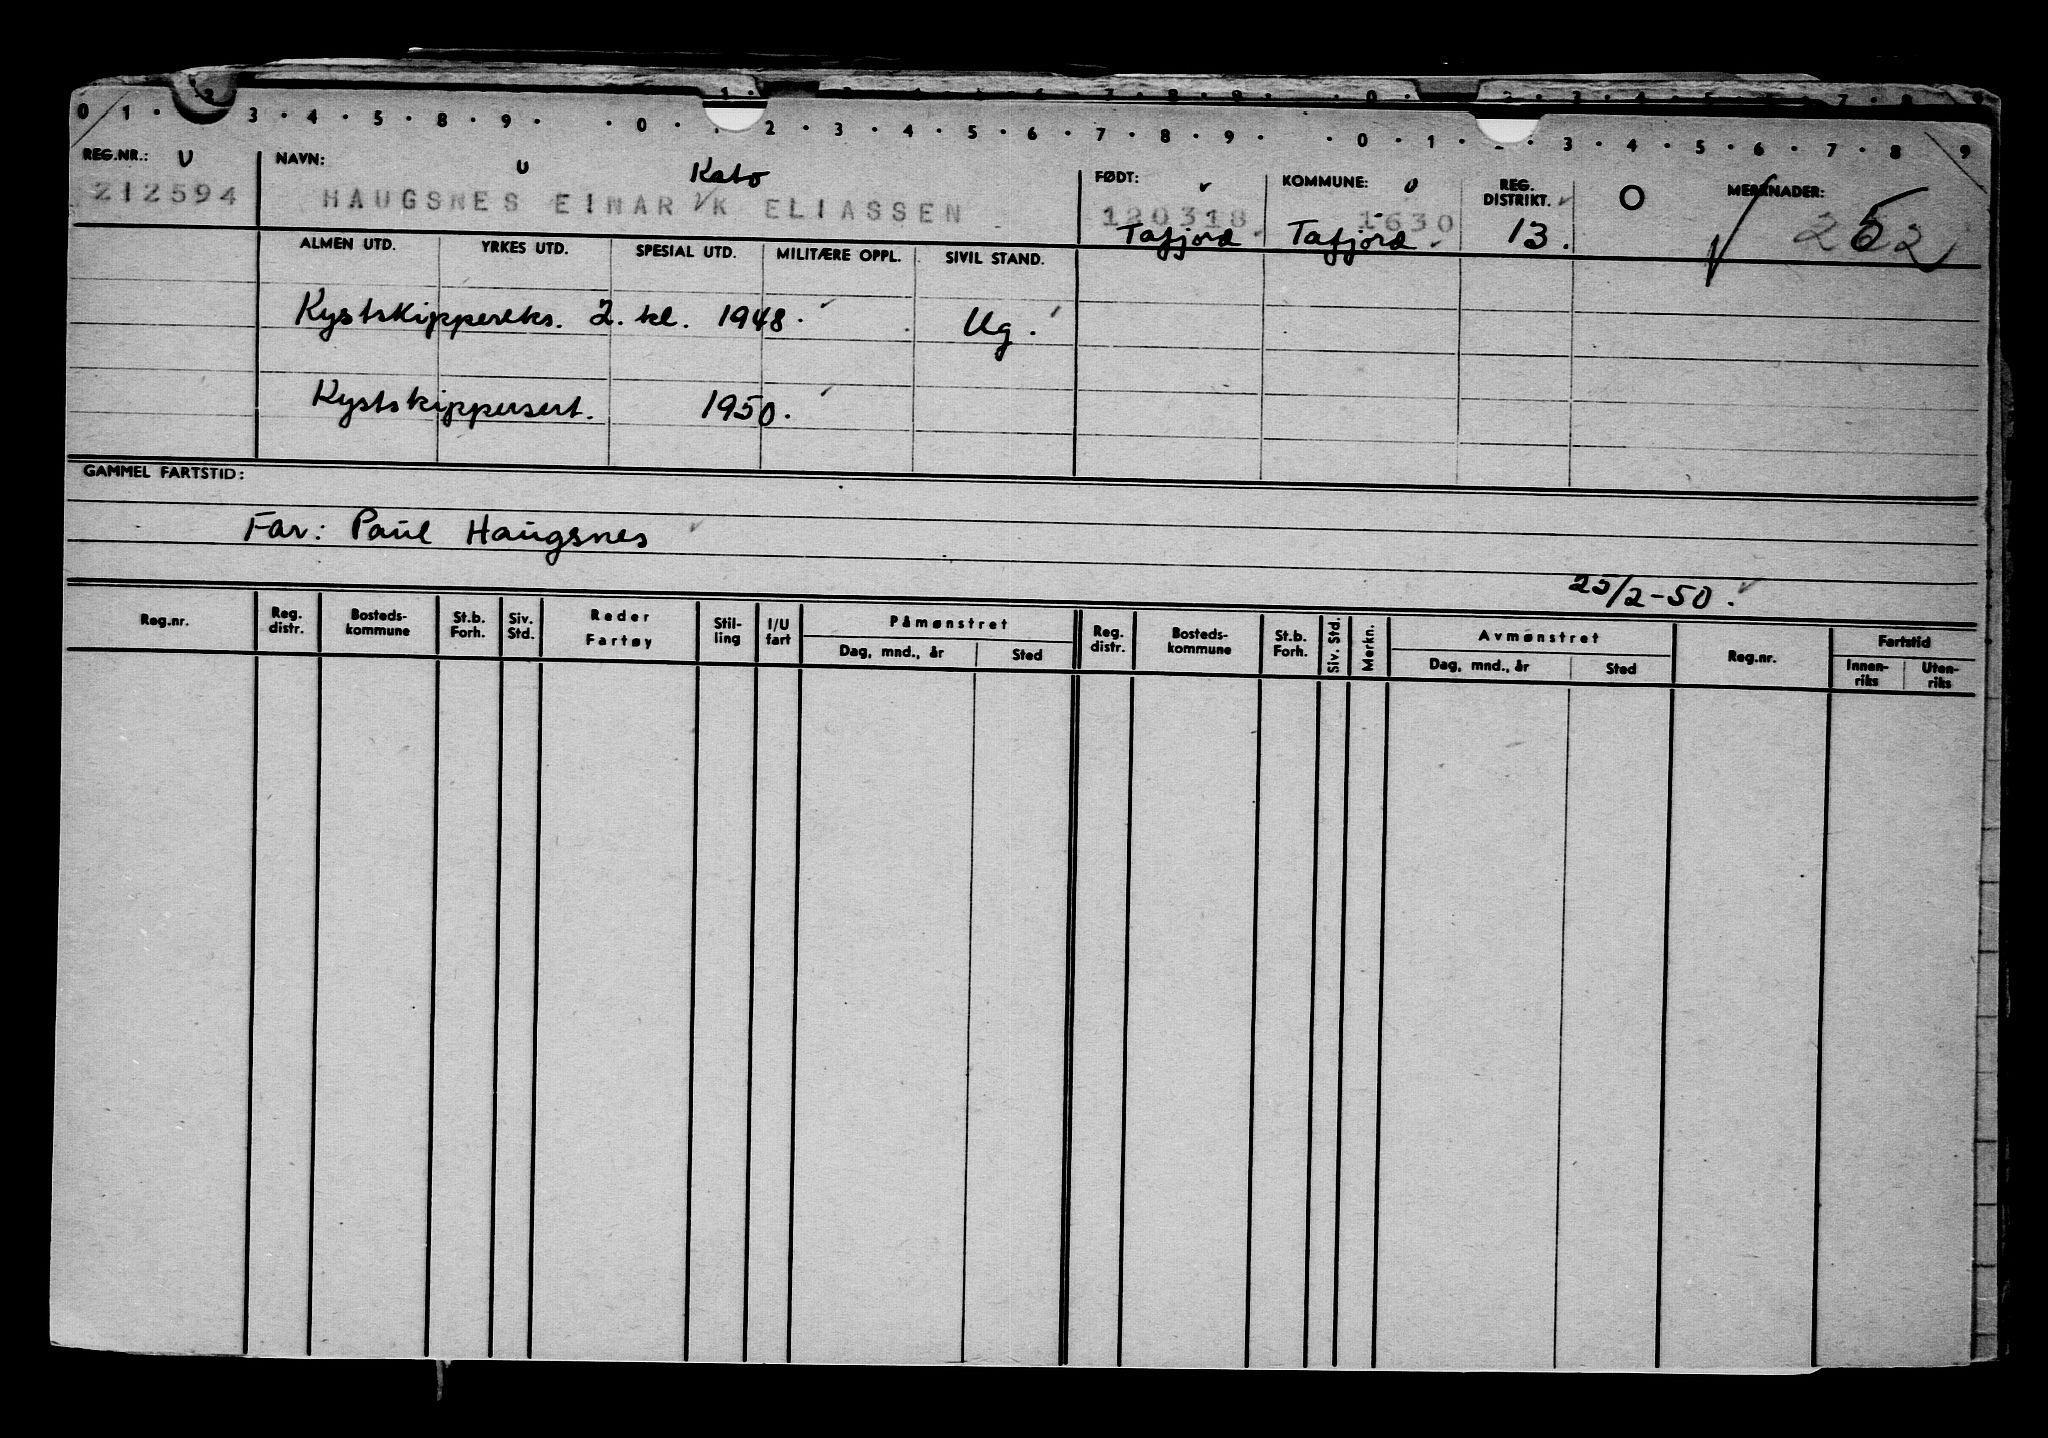 0 1 · 2 3 · 4 · 5 · 8 · 9 · · 0 · · 2 · 3 · 4 · 5 · 6 · 7 · 8 · 9 · · 0 · 1 · 3 · 4 · 5 · 6 · 7 · 8 · 9
REG.NR.: NAVN: Kato FØDT: KOMMUNE: REG. DISTRIKT. O MERKNADER:
212594 HAUGSNES EINAR K ELIASSEN 120318. 1630 252
Tafjord Tafjord. 13.
ALMEN UTD. YRKES UTD. SPESIAL UTD. MILITÆRE OPPL. SIVIL STAND.
Kystskippereks. 2. kl. 1948. Ug.
Kystskippersert. 1950.
GAMMEL FARTSTID:
Far: Paul Haugsnes
25/2-50.
Reg.nr. Reg. distr. Bosteds-kommune St.b. Forh. Siv. Std. Reder Fartøy Stil-ling I/U fart Påmønstret Reg. distr. Bosteds-kommune St.b. Forh. Siv. Std. Merkn. Avmønstret Reg.nr. Fartstid
Dag, mnd., år Sted Dag, mnd., år Sted Innen-riks Uten-riks